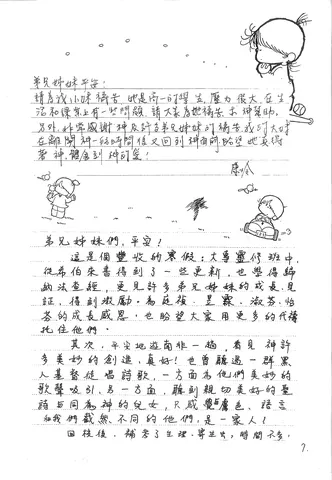 弟兄姊妹平安:
請為我小妹禱告,她是高一的學生,壓力很大,在生
活和課業上有一些問題,請大家為她禱告,求神幫助。
另外,非常感謝神及許多弟兄姊妹的禱告,我的大姊
在離開神一段時間後又回到神面前,盼望她真得
著神,體會到神的愛!
弟兄姊妹們,平安!
這是個豐收的寒假;大專靈修班中,
從希伯來書得到了一些更新,也學得歸
納法查經,更見許多弟兄姊妹的成長見
證,得到激勵。為庭禎、昱霖、淑芬、怡
芬的成長感恩,也盼望大家用更多的代禱
托住他們。
其次,平安地遊南非一趟,看見神許
多美妙的創造,真好!也曾聽過一群黑
人基督徒唱詩歌,一方面為他們美妙的
歌聲吸引,另一方面,聽到親切美好的聖
詩與同為神的兒女,只感覺膚色、語言
和我們截然不同的他們,是一家人!
回校後,補考了生理、寄生虫,時間不多
7.